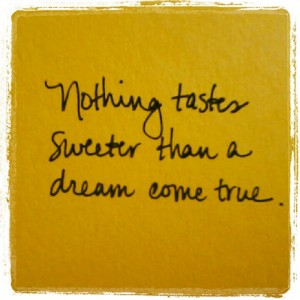 Nothing tastes
sweeter than a
dream come true.